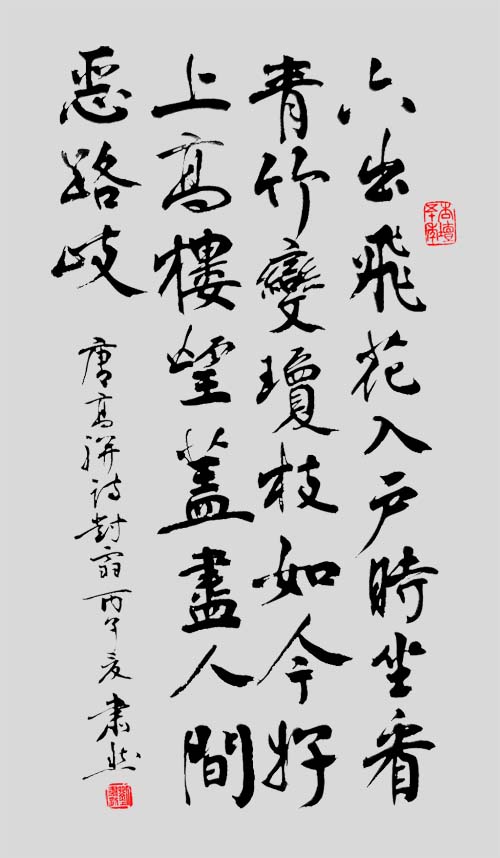 六出飛花入戶時坐看
青竹變瓊枝如今好
上高樓望蓋盡人間
惡路歧
唐高駢詩對雪丙午夏肅然